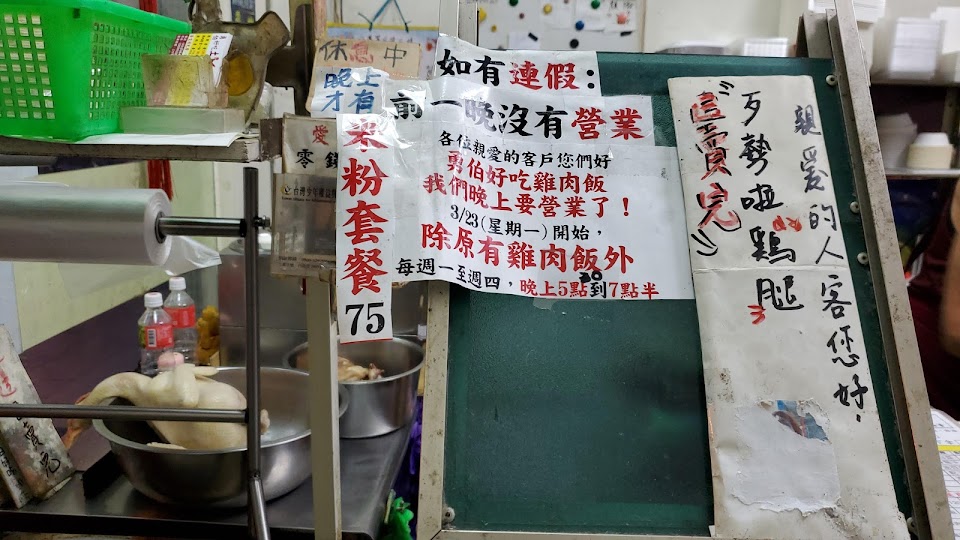 休息中
晚上
才有
如有連假：
前一晚沒有營業
各位親愛的客戶您們好
勇伯好吃雞肉飯
我們晚上要營業了！
3/23(星期一)開始，
除原有雞肉飯外
每週一至週四，晚上5點30到7點半
米粉套餐
75
親愛的人客您好，
歹勢啦雞腿
"已賣完"
愛
零錢